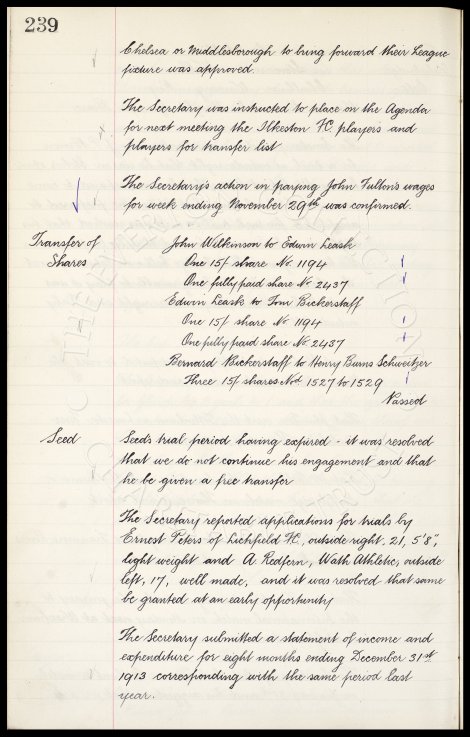 239
Chelsea or Middlesborough to bring forward their League
fixture was approved.
The Secretary was instructed to place on the Agenda
for next meeting the Ilkeston F.C. players and
players for transfer list
The Secretary's action in paying John Fulton's wages
for week ending November 29th was confirmed.
Transfer of
Shares
John Wilkinson to Edwin Leask
One 15/- share No. 1194
One fully paid share No. 2437
Edwin Leask to Tom Bickerstaff
One 15/- share No. 1194
One fully paid share No. 2437
Bernard Bickerstaff to Henry Burns Schweitzer
Three 15/- shares Nos. 1527 to 1529
Passed
Seed
Seed's trial period having expired - it was resolved
that we do not continue his engagement and that
he be given a free transfer
The Secretary reported applications for trials by
Ernest Peters of Lichfield F.C. outside right, 21, 5'8",
light weight and A Redfern, Wath Athletic, outside
left, 17, well made, and it was resolved that same
be granted at an early opportunity
The Secretary submitted a statement of income and
expenditure for eight months ending December 31st
1913 corresponding with the same period last
year.